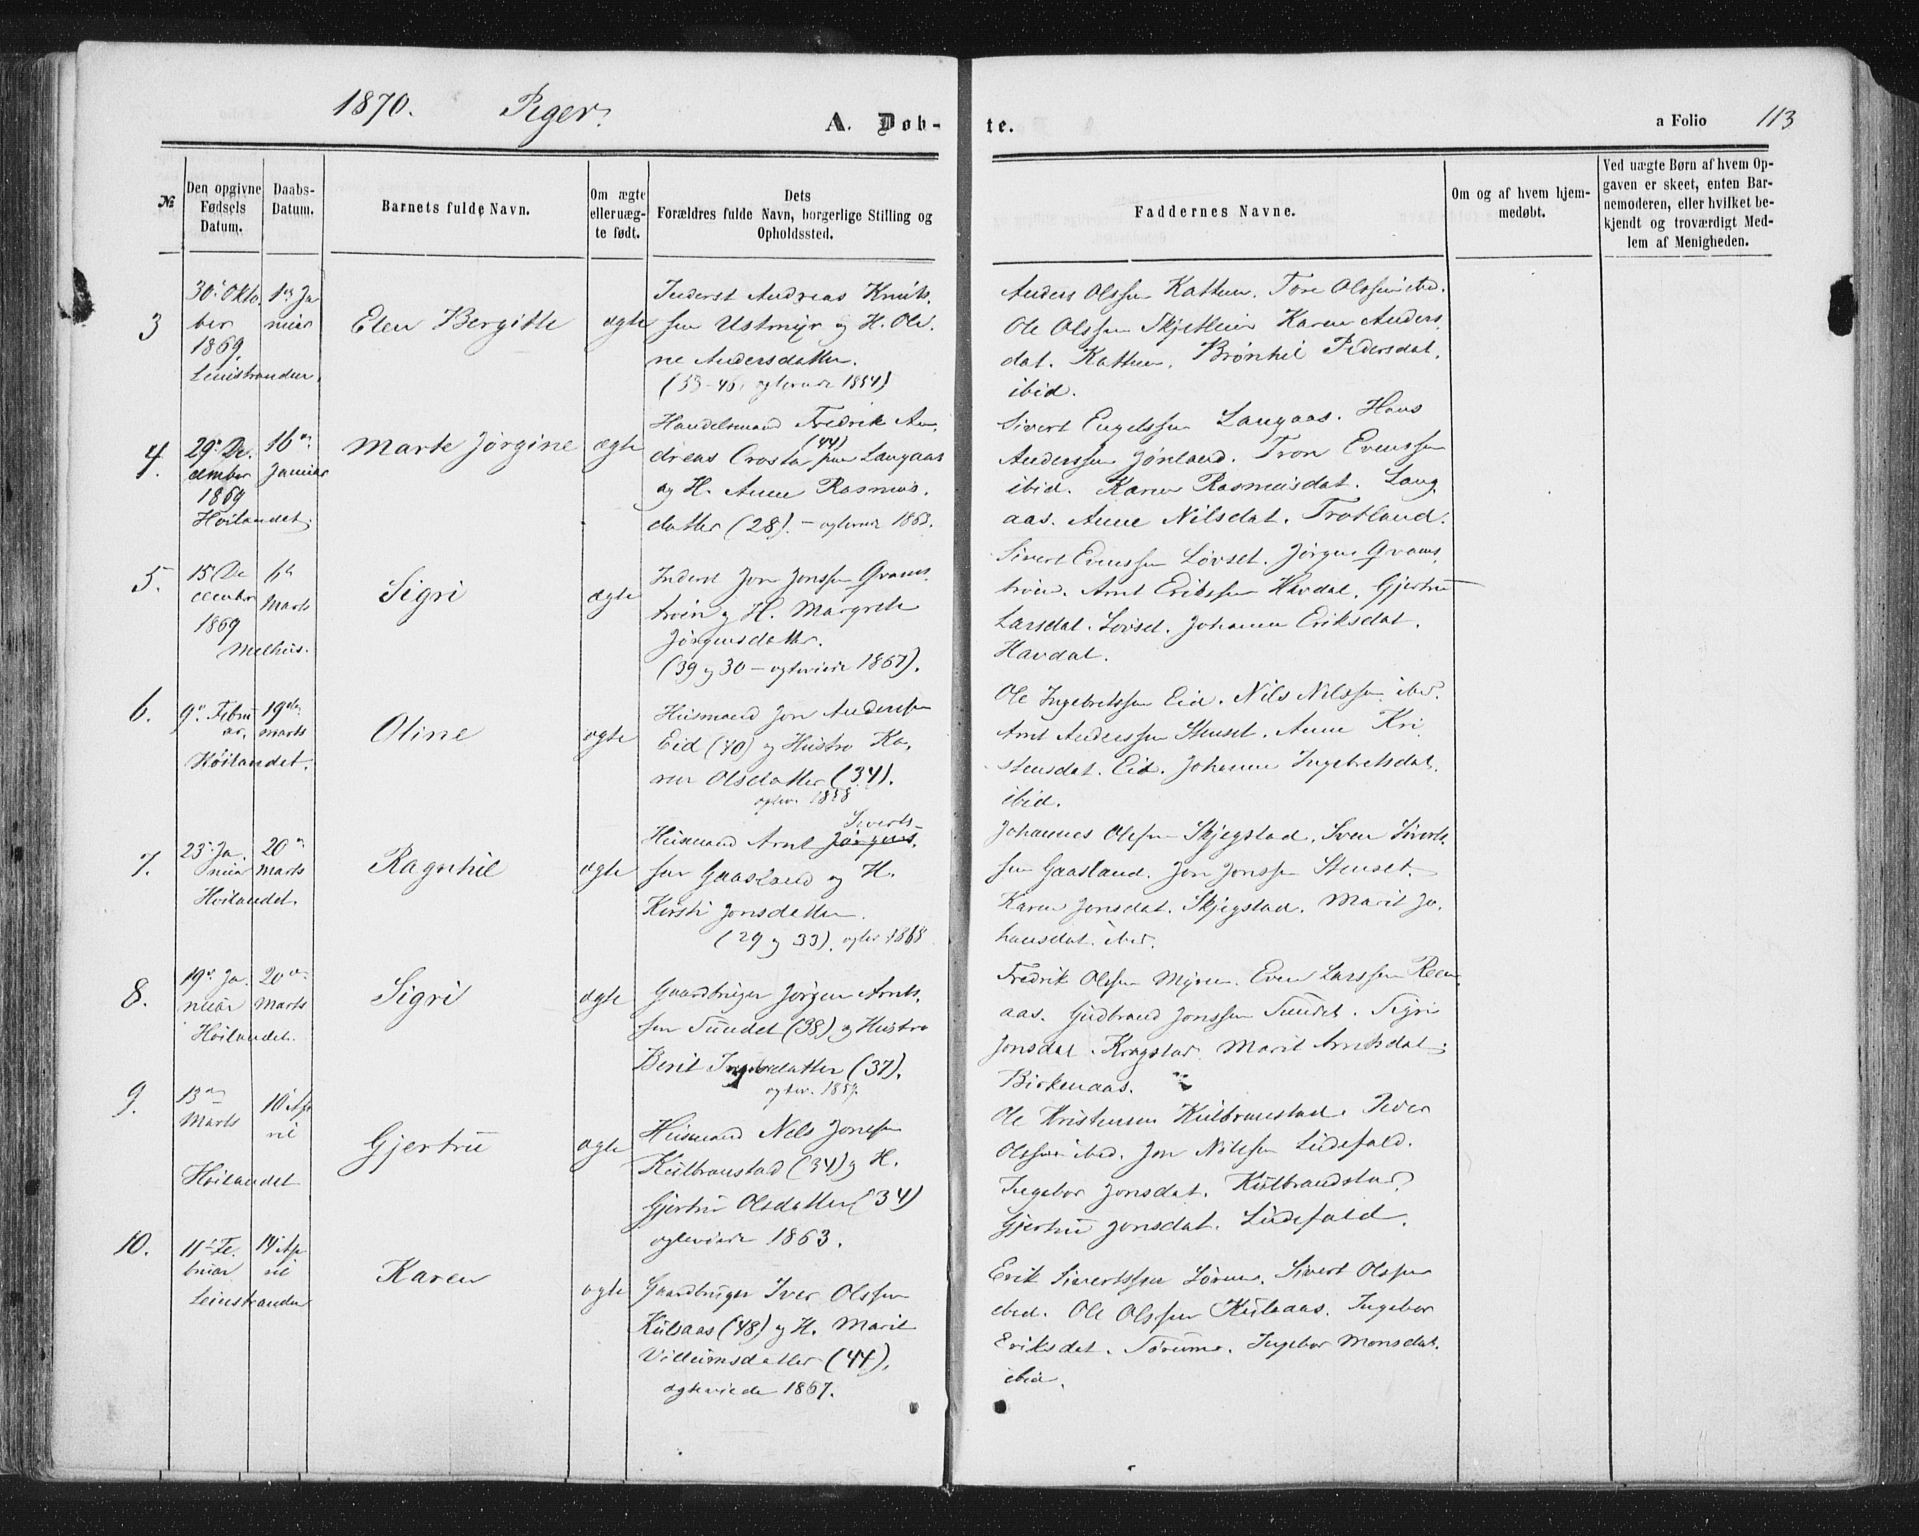 1870. Piger.
A. Døb-
te.
a Folio 113
№
Den opgivne Fødsels Datum.
Daabs-Datum.
Barnets fulde Navn.
Om ægte eller uæg-te født.
Dets Forældres fulde Navn, borgerlige Stilling og Opholdssted.
Faddernes Navne.
Om og af hvem hjem-medøbt.
Ved uægte Børn af hvem Op-gaven er skeet, enten Bar-nemoderen, eller hvilket be-kjendt og troværdigt Med-lem af Menigheden.
3
30' Okto
ber
1869,
Leinstranden.
1ste Ja
nuar
Elen Bergitte
ægte
Inderst Andreas Knuts.
sen Ustmyr og H. Ole.
ne Andersdatter.
(33-46, ægteviede 1854)
Anders Olssen Kathen. Tore Olssen ibd.
Ole Olssen Skjetlein Karen Anders.
dat. Kathen. Brønhil Pedersdat.
ibid.
4.
29' De.
cember
1869
Høilandet.
16de
Januar
Marte Jørgine
ægte
Handelsmand Fredrik An.
dreas Crosta (44) paa Langaas
og H. Anne Rasmus.
datter (28). - ægteviede 1863.
Sivert Engelssen Langaas. Hans
Anderssen Jønland. Tron Evenssen
ibid. Karen Rasmusdat. Lang
aas. Anne Nilsdat. Trotland.
5.
15' De
cember
1869
Melhus.
6te
Marts
Sigri
ægte
Inderst Jon Jonssen Qvams.
tröen og H. Margrete
Jørgensdatter.
(39 og 30 - ægteviede 1867).
Sivert Evenssen Løvset. Jørgen Qvams.
tröen. Arnt Erikssen Havdal. Gjertru
Larsdat. Løvset. Johanne Eriksdat.
Havdal.
6.
9' Febru
ar.
Høilandet.
19de
Marts
Oline
ægte
Husmand Jon Anderssen
Eid (40) og Hustro Ka.
ren Olsdatter (34).
ægtev. 1858
Ole Ingebretssen Eid. Nils Nilssen ibd.
Arnt Anderssen Stenset. Anne Kri
stensdat. Eid. Johanne Ingebretsdat.
ibid.
7.
23' Ja.
nuar
Høilandet.
20de
Marts
Ragnhil
ægte
Siverts-
Husmand Arnt Jørgens.
sen Gaasland og H.
Kirsti Jonsdatter.
(29 og 33). ægtev 1868
Johannes Olssen Skjegstad. Sven Siverts
sen Gaasland. Jon Jonssen Stenset.
Karen Jonsdat. Skjegstad. Marit Jo.
hansdat. ibd.
8.
19de Ja.
nuar
Høilandet.
20de
Marts
Sigri
ægte
Gaardbruger Jørgen Arnts.
sen Sundet (38) og Hustro
Berit Ingebrdatter (37).
ægtev. 1857.
Fredrik Olssen Myren. Even Larssen Reen.
aas. Gudbrand Jonssen Sundet. Sigri
Jonsdat. Kregstad. Marit Arntsdat.
Birkenaas.
9.
13de
Marts
Høilandet
10 Ap
ril
Gjertru
ægte
Husmand Nels Jonssen
Kulbranstad (34) og H.
Gjertru Olsdatter (34)
ægteviede 1863.
Ole Kristensen Kulbranstad. Iver
Olssen ibid. Jon Nilssen Lidefald.
Ingebor Jonsdat. Kulbrandstad
Gjertru Jonsdat. Lidefald.
10.
11' Fe.
bruar
Leinstranden
14 Ap
ril
Karen
ægte
Gaardbruger Iver Olssen
Kulsaas (48) og H. Marit
Villumsdatter (44).
ægteviede 1867.
Erik Sivertssen Sørum. Sivert Olssen
ibid. Ole Olssen Kulsaas. Ingebor
Eriksdat. Sørum. Ingebor Monsdat.
ibid.